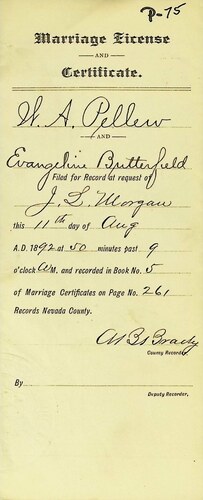 P-75
Marriage License
AND
Certificate.
W. A. Pellew
AND
Evangeline Butterfield
Filed for Record at request of
J. L. Morgan
this 11th day of Aug
A.D. 1892 at 50 minutes past 9
o'clock A M. and recorded in Book No. 5
of Marriage Certificates on Page No. 261
Records Nevada County.
Brady
County Recorder
By
Deputy Recorder.